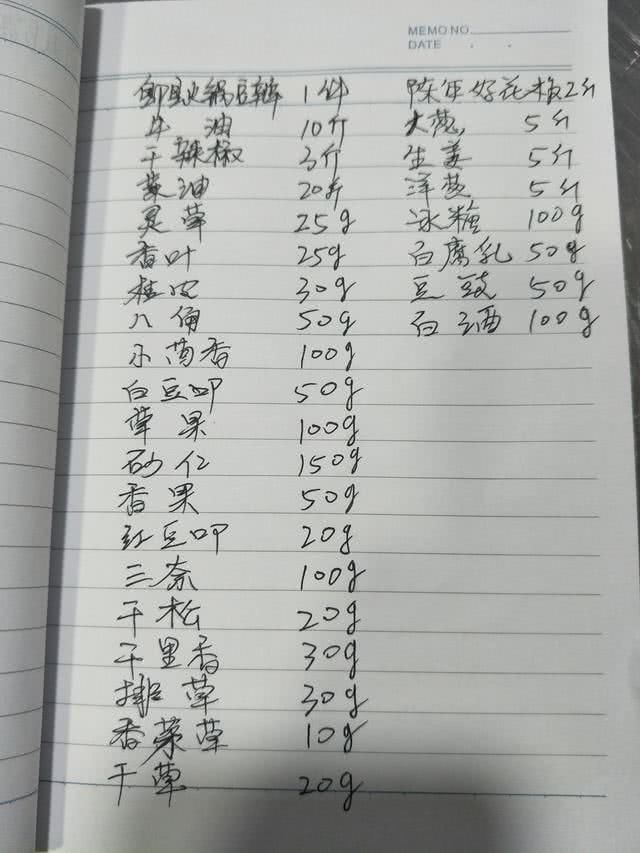 MEMO NO.
DATE . .
郫县火锅豆瓣 1件
牛油 10斤
干辣椒 3斤
菜油 20斤
灵草 25g
香叶 25g
桂皮 30g
八角 50g
小茴香 100g
白豆叩 50g
草果 100g
砂仁 150g
香果 50g
红豆叩 20g
三奈 100g
干松 20g
千里香 30g
排草 30g
香茅草 10g
干草 20g
陈年好花椒2斤
大葱, 5斤
生姜 5斤
洋葱 5斤
冰糖 100g
白腐乳 50g
豆豉 50g
白酒 100g